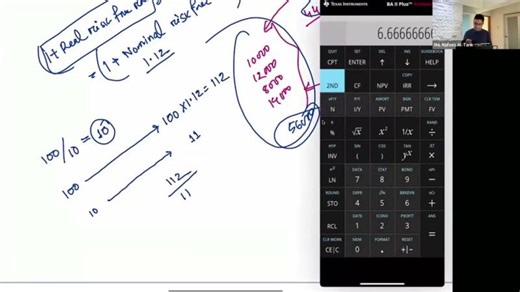 1+ Real risk free
= (1 + Nominal risk free
1.12
44
10000
12000
8000
14000
56000
100 x 1.12 = 112
100/10 = 10
11
100
112
11
10
TEXAS INSTRUMENTS
BA II Plus™
6.66666666
QUIT SET DEL INS
CPT ENTER ↑ ↓ HELP
COPY
2ND CF NPV IRR →
xP/Y P/Y AMORT BGN CLR TVM
N I/Y PV PMT FV
RAND
% √x x² 1/x ÷
HYP SIN COS TAN
INV ( ) yˣ ×
DATA STAT BOND
LN 7 8 9 −
ROUND DEPR BRKEVN
STO 4 5 6 +
DATE ICONV PROFIT ANS
RCL 1 2 3 =
CLR WORK MEM FORMAT RESET
CE|C 0 . +|−